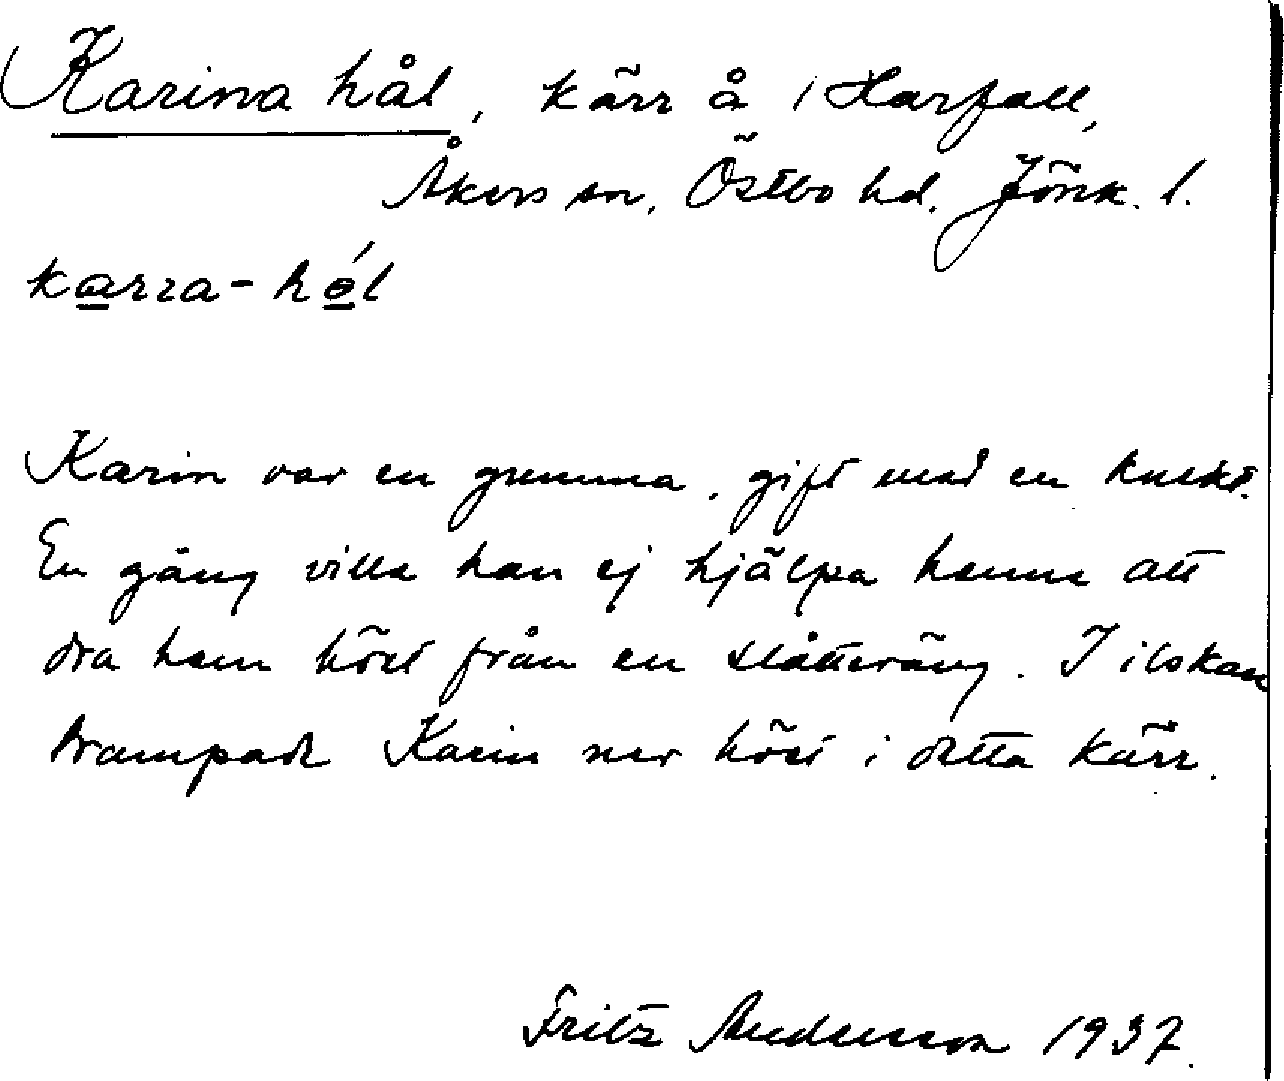 Karina hål, kärr å 1 Harfall,
Åkers sn, Östbo hd. Jönk. l.
karra-hól
Karin var en gumma, gift med en knekt.
En gång ville han ej hjälpa henne att
dra hem höet från en slåtteräng. I ilskan
trampade Karin ner höet i detta kärr.
Fritz Andersson 1937.